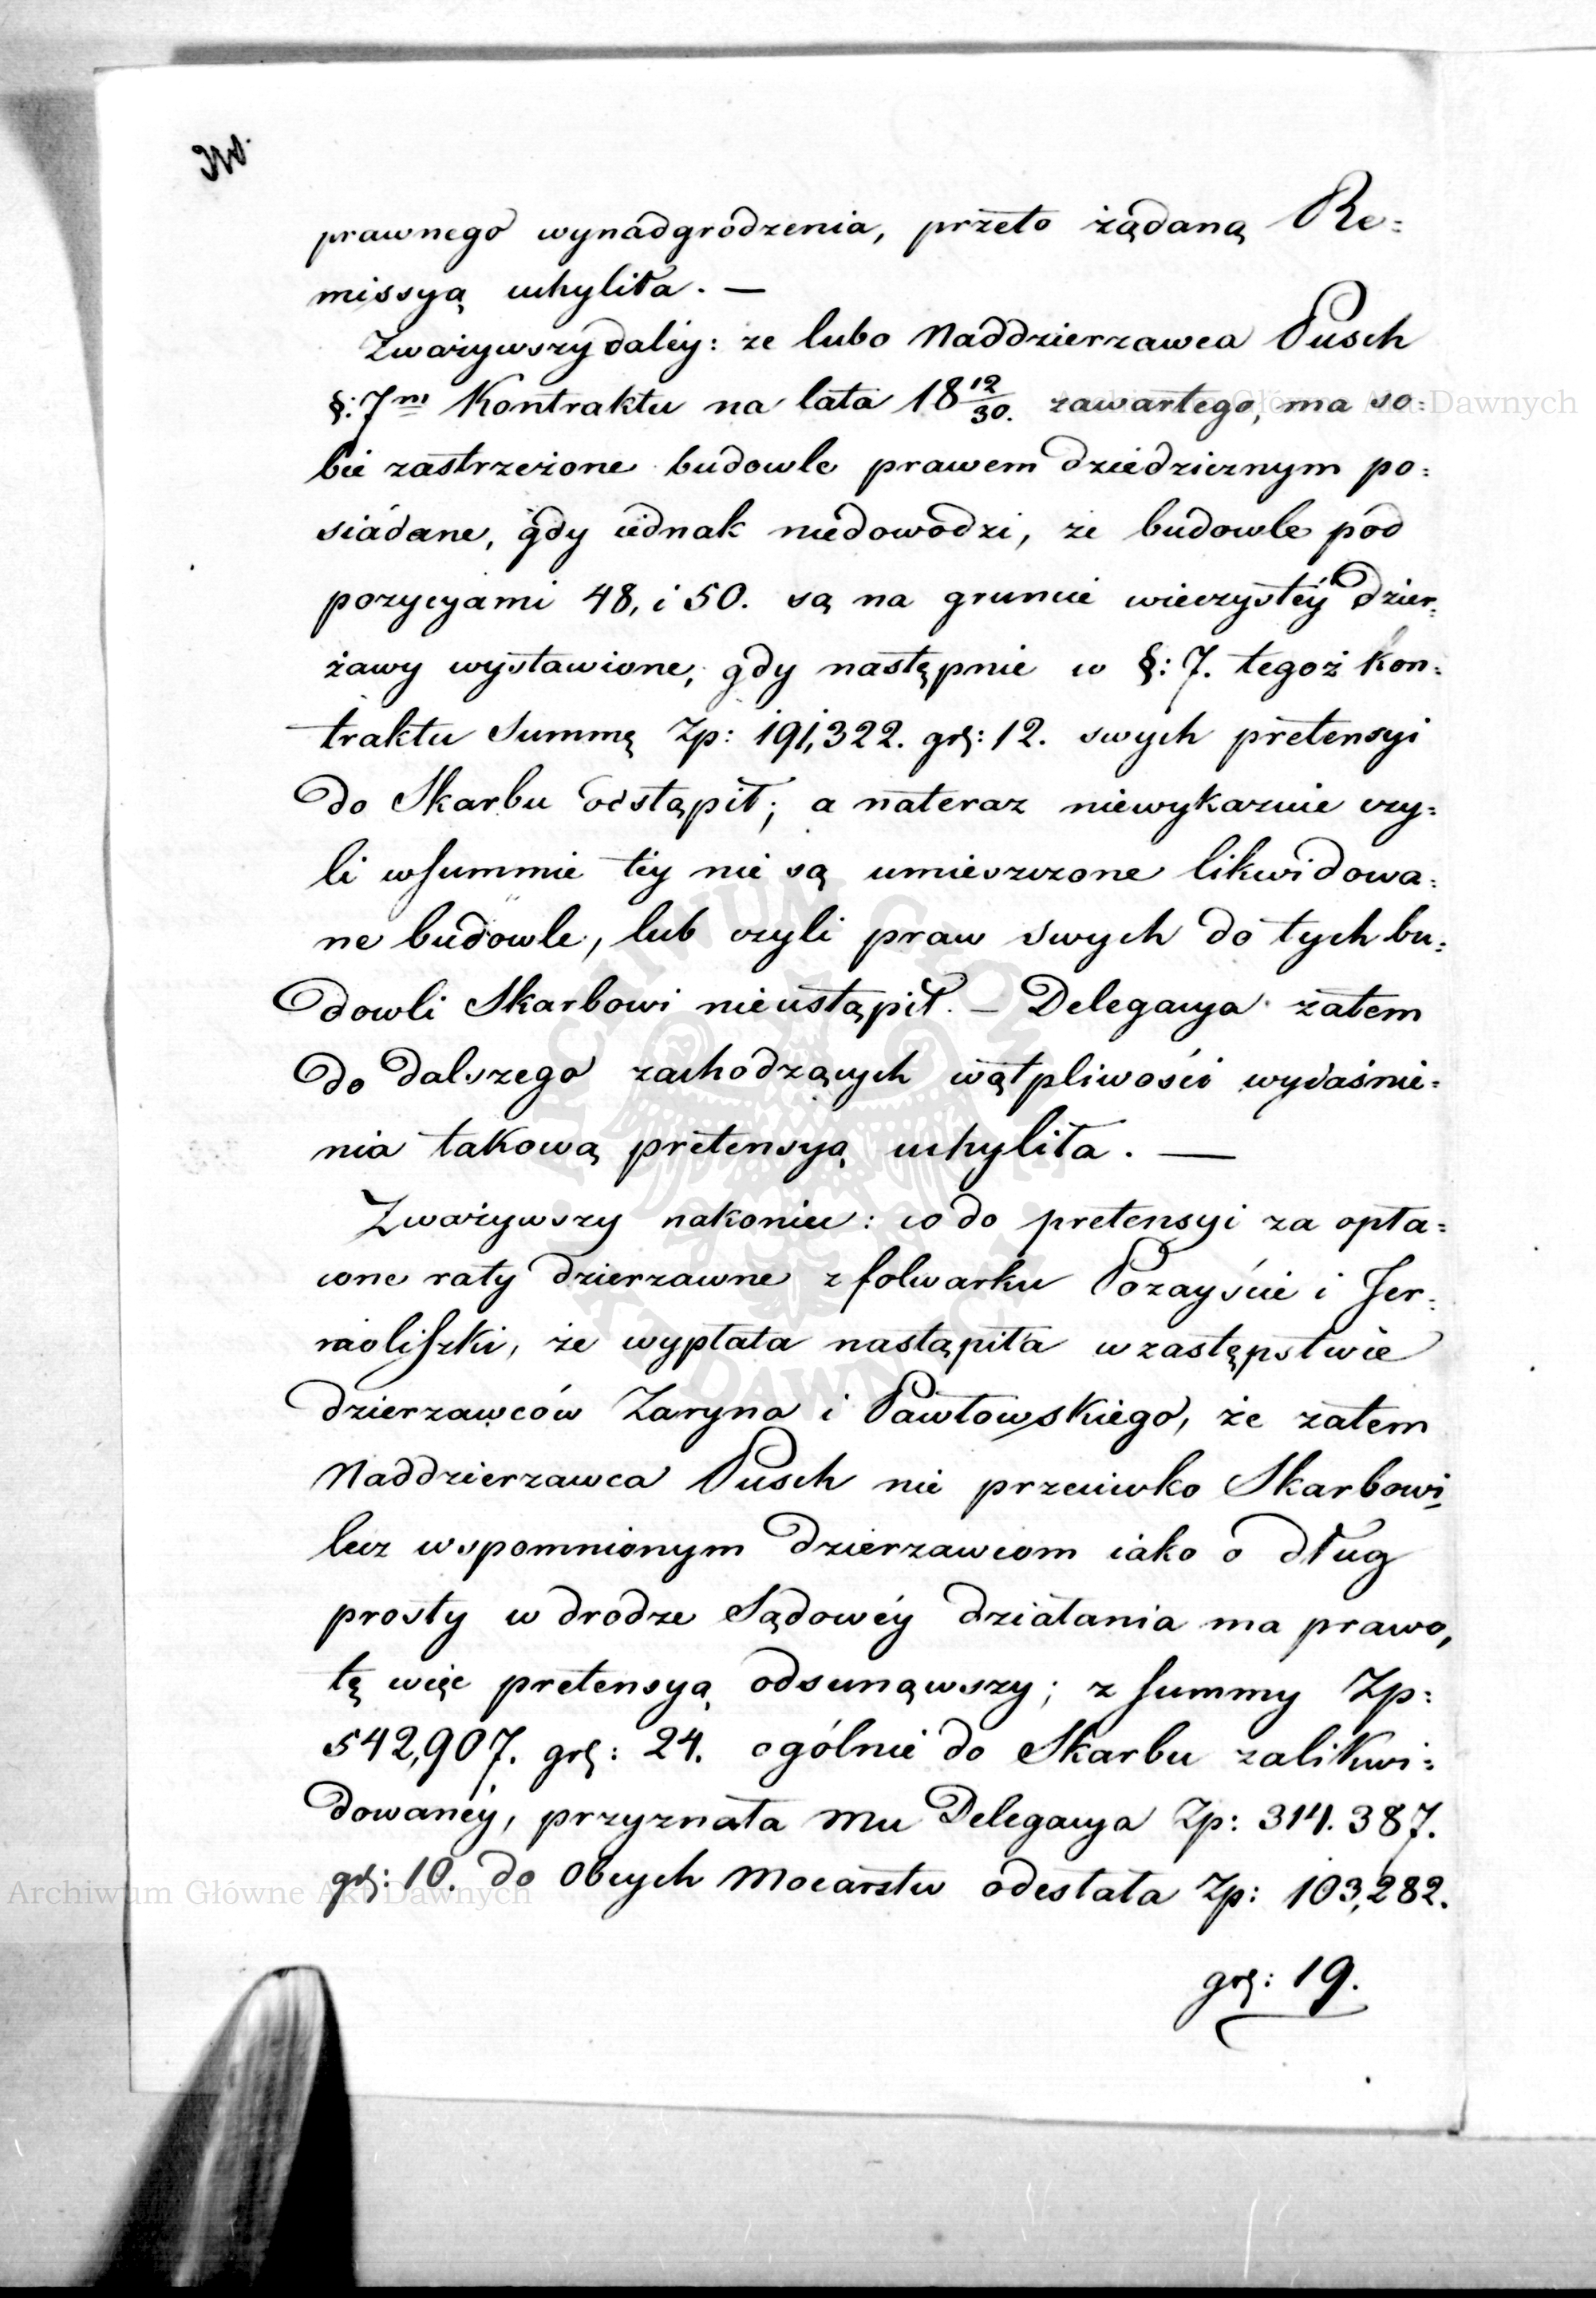 prawnego wynadgrodzenia, przeto żądaną Re=
missyą uchyliła. —
Zważywszy daléy: że lubo Naddzierzawca Pusch
§: 7m Kontraktu na lata 18 12/30. zawartego, ma so=
bie zastrzeżone budowle prawem dziedzicznym po=
siadane, gdy iednak niedowodzi, że budowle pod
pozycyami 48, i 50. są na gruncie wieczystéy dzier=
żawy wystawione, gdy następnie w §: 7. tegoż Kon=
traktu Summę Zp: 191,322. gr: 12. swych pretensyi
do Skarbu odstąpił; a nateraz niewykazuie czy=
li wsummie téy nie są umieszczone likwidowa=
ne budowle, lub czyli praw swych do tych bu=
dowli Skarbowi nieustąpił. — Delegacya zatem
do dalszego zachodzących wątpliwości wyiaśnie=
nia takową pretensyą uchyliła. —
Zważywszy nakoniec: co do pretensyi za opła=
cone raty dzierzawne z folwarku Pozayście i Jer=
maliszki, że wypłata nastąpiła w zastępstwie
dzierzawców Zaryna i Pawłowskiego, że zatem
Naddzierzawca Pusch nie przeciwko Skarbowi
lecz wspomnionym dzierzawcom iako o dług
prosty w drodze Sądowéy działania ma prawo,
tę więc pretensyą odsunąwszy; z summy Zp:
542,907. gr: 24. ogólnie do Skarbu zalikwi=
dowanéy, przyznała Mu Delegacya Zp: 314.387.
gr: 10. do Obcych Mocarstw odesłała Zp: 103,282.
gr: 19.
Archiwum Główne Akt Dawnych
Archiwum Główne Akt Dawnych
ARCHIWUM GŁÓWNE AKT DAWNYCH